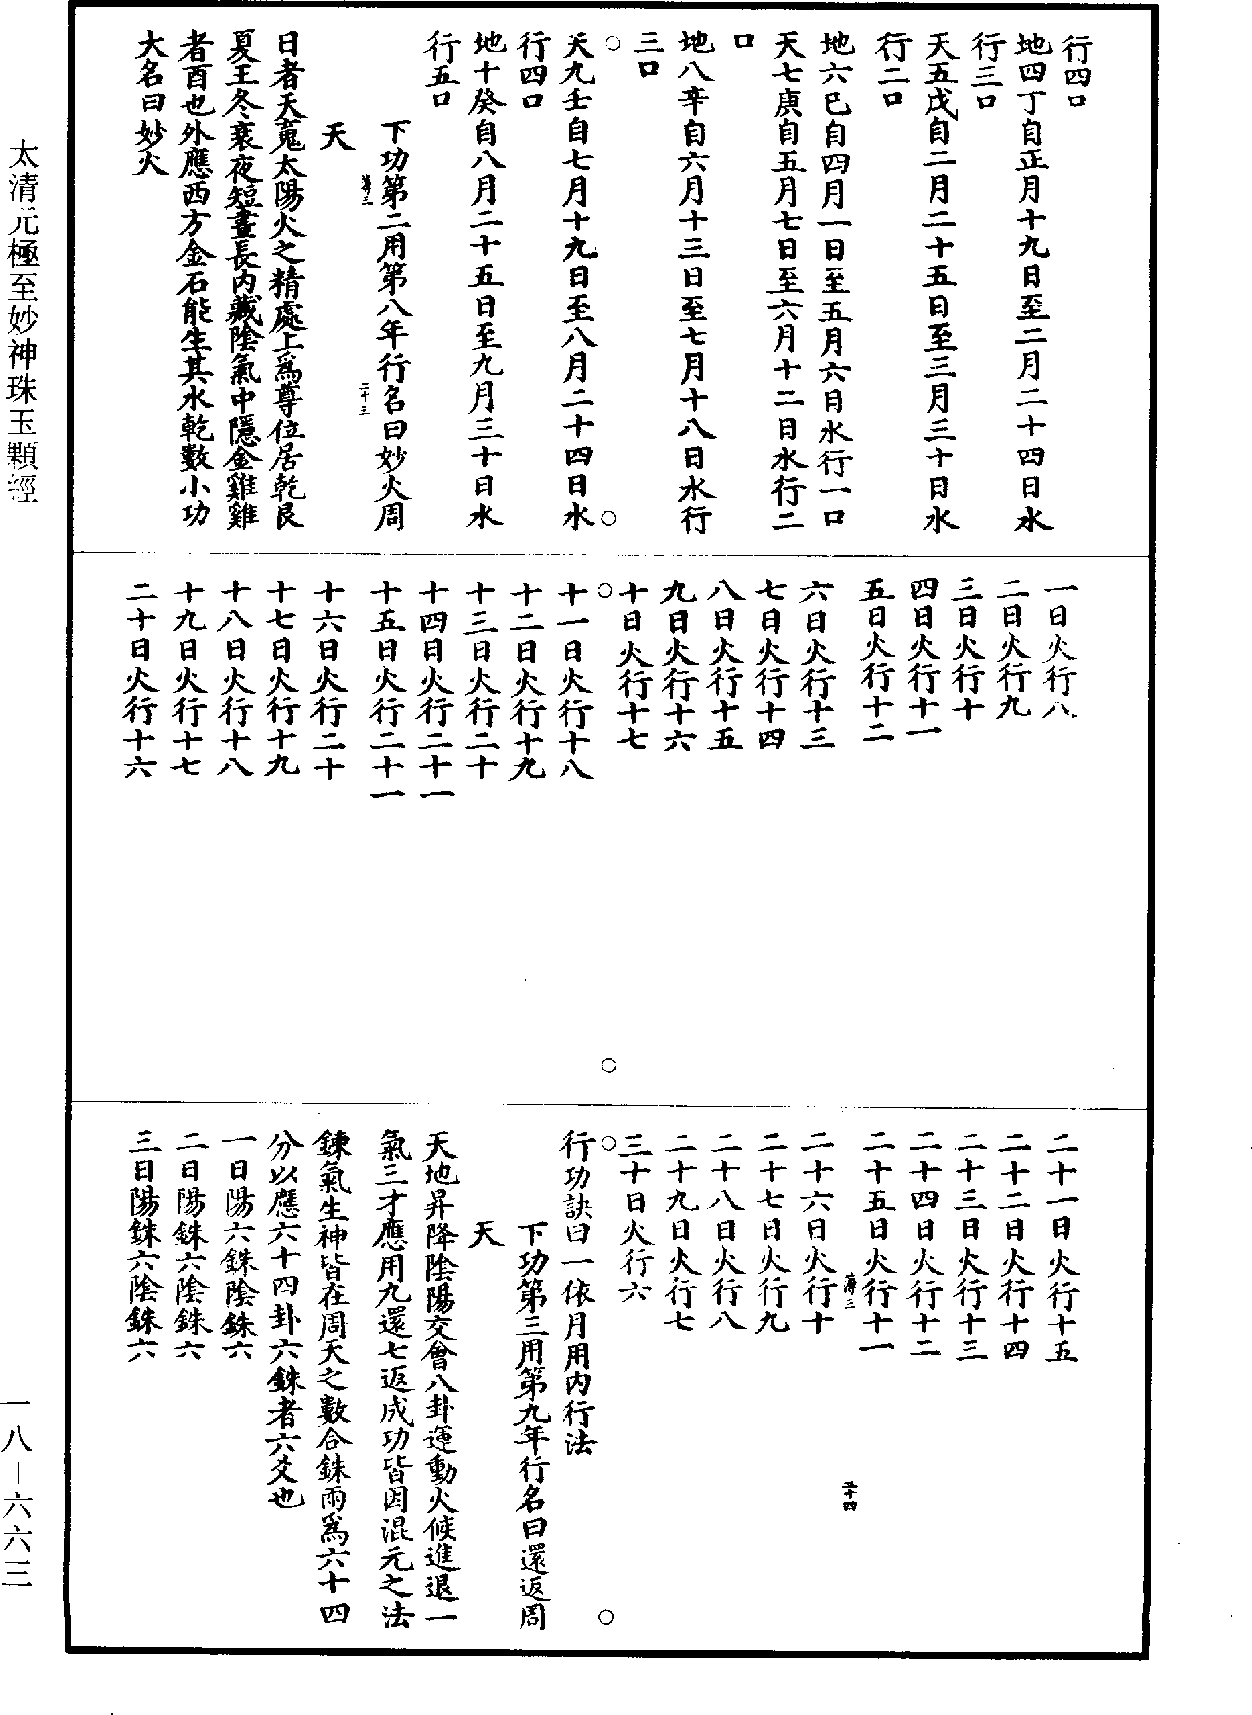 行四口
地四丁自正月十九日至二月二十四日水
行三口
天五戊自二月二十五日至三月三十日水
行二口
地六巳自四月一日至五月六日水行一口
天七庚自五月七日至六月十二日水行二
口
地八辛自六月十三日至七月十八日水行
三口
天九壬自七月十九日至八月二十四日水
行四口
地十癸自八月二十五日至九月三十日水
行五口
下功第二用第八年行名曰妙火周
薄三
二十三
天
日者天䰟太陽火之精處上爲尊位居乾艮
夏王冬衰夜短晝長內藏陰氣中隱金雞雞
者酉也外應西方金石能生其水乾數小功
大名曰妙火
一日火行八
二日火行九
三日火行十
四日火行十一
五日火行十二
六日火行十三
七日火行十四
八日火行十五
九日火行十六
十日火行十七
十一日火行十八
十二日火行十九
十三日火行二十
十四日火行二十一
十五日火行二十一
十六日火行二十
十七日火行十九
十八日火行十八
十九日火行十七
二十日火行十六
二十一日火行十五
二十二日火行十四
二十三日火行十三
二十四日火行十二
二十五日火行十一
薄三
二十四
二十六日火行十
二十七日火行九
二十八日火行八
二十九日火行七
三十日火行六
行功訣曰一依月用內行法
下功第三用第九年行名曰還返周
天
天地昇降陰陽交會八卦運動火候進退一
氣三才應用九還七返成功皆因混元之法
鍊氣生神皆在周天之數合銖兩爲六十四
分以應六十四卦六銖者六爻也
一日陽六銖陰銖六
二日陽銖六陰銖六
三日陽銖六陰銖六
太清元極至妙神珠玉顆經
一八－六六三